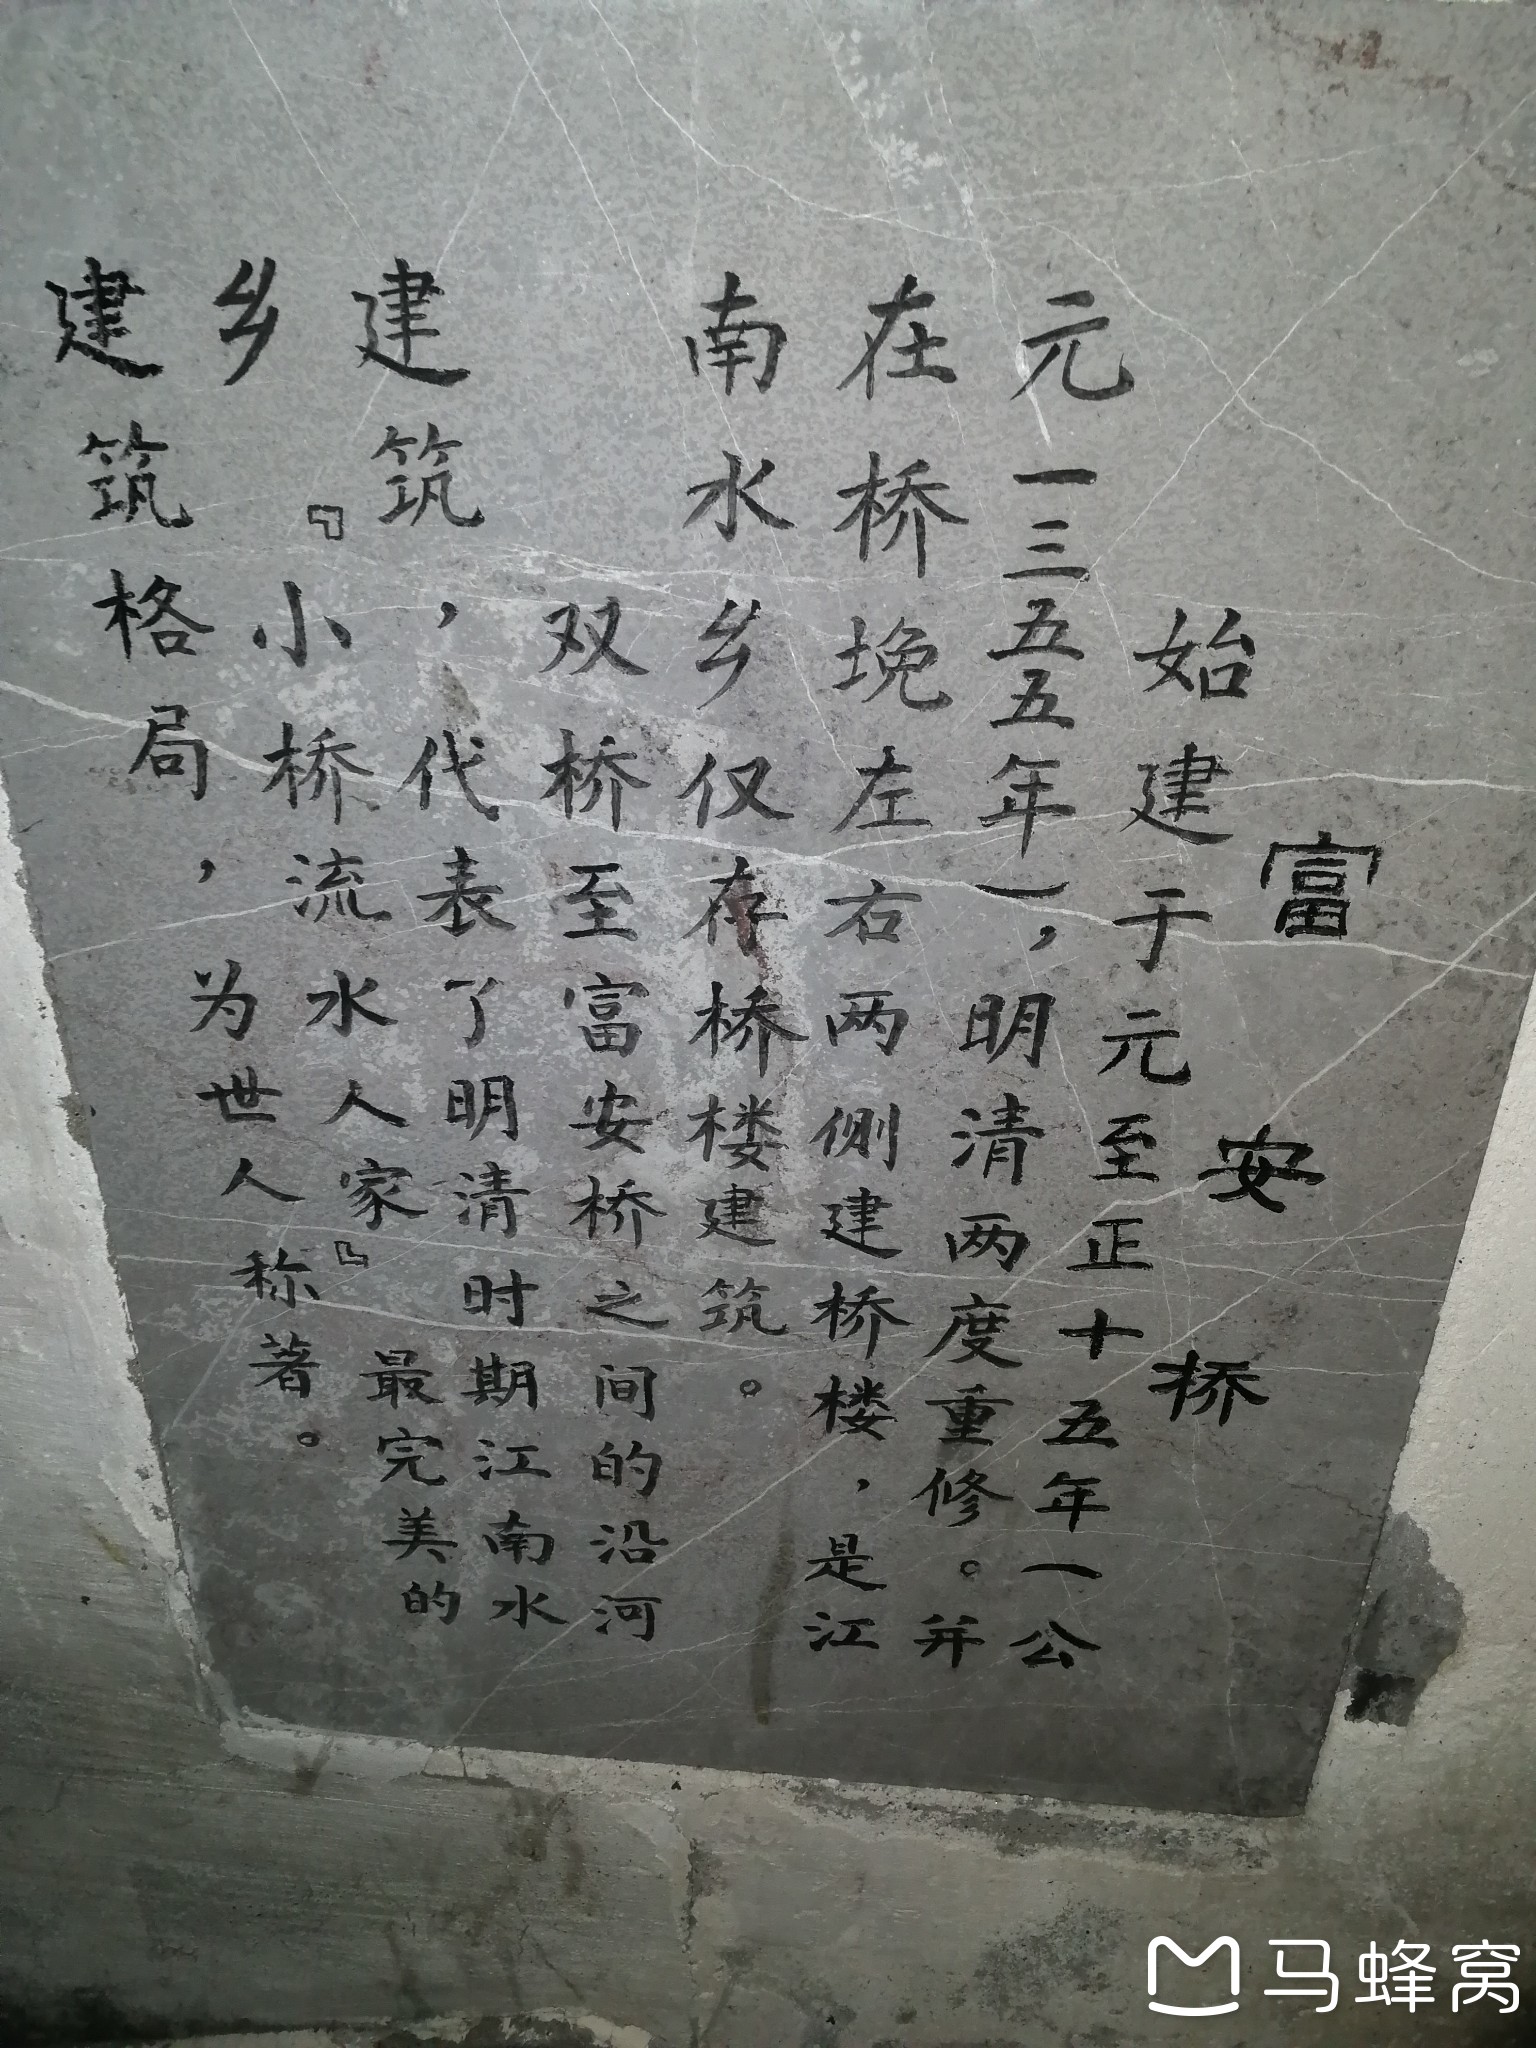 富安桥
始建于元至正十五年（公
元一三五五年），明清两度重修。并
在桥堍左右两侧建桥楼，是江
南水乡仅存桥楼建筑。
双桥至富安桥之间的沿河
建筑，代表了明清时期江南水
乡『小桥流水人家』最完美的
建筑格局，为世人称著。
马蜂窝